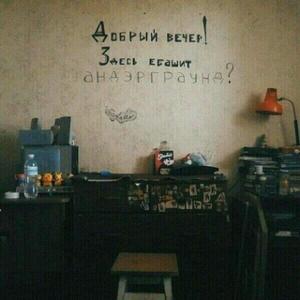 Добрый вечер!
Здесь ебашит
андэрграунд?